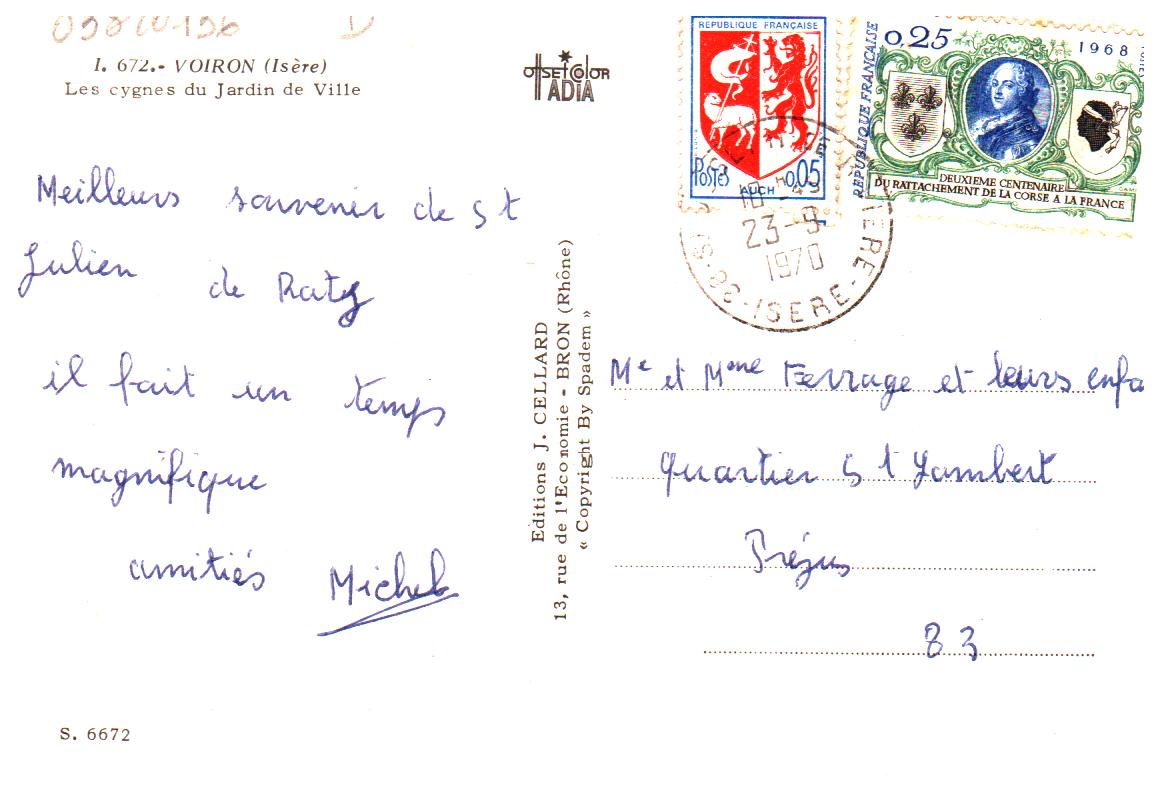 I. 672.- VOIRON (Isère)
Les cygnes du Jardin de Ville
offset color
ADIA
Meilleurs souvenir de St
Julien de Ratz
il fait un temps
magnifique
amitiés Michel
S. 6672
Editions J. CELLARD
13, rue de l'Economie - BRON (Rhône)
« Copyright By Spadem »
REPUBLIQUE FRANÇAISE
POSTES
AUCH 0,05
REPUBLIQUE FRANÇAISE
0,25
1968
POSTES
DEUXIEME CENTENAIRE
DU RATTACHEMENT DE LA CORSE A LA FRANCE
23-9
1970
38-ISERE
Mr et Mme Ferrage et leurs enfa
quartier St Lambert
Fréjus
83